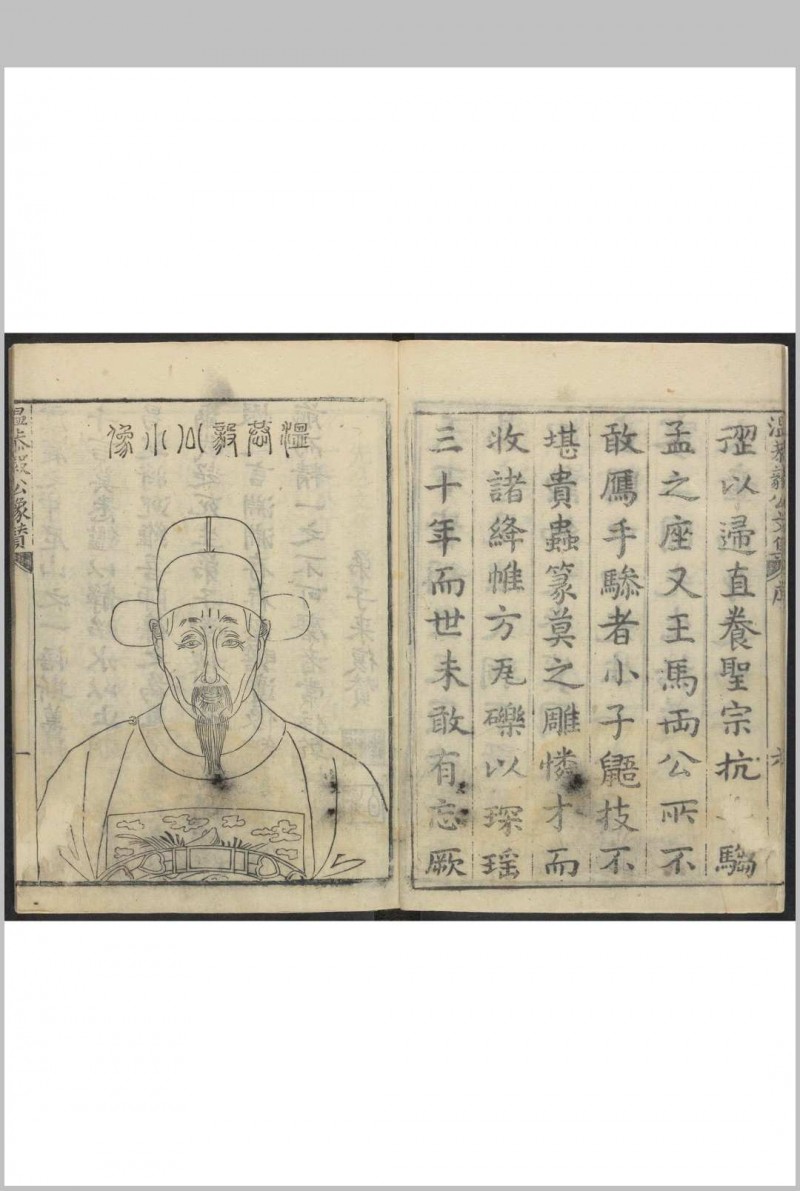 溫恭毅公文集 序
澀以歸直養聖宗抗 騶
孟之座又王馬兩公所不
敢鴈手驂者小子鼯技不
堪貴蟲篆莫之雕憐才而
收諸絳帷方瓦礫以琛瑤
三十年而世未敢有忘厥
溫恭毅公小像
溫恭毅公像贊
一